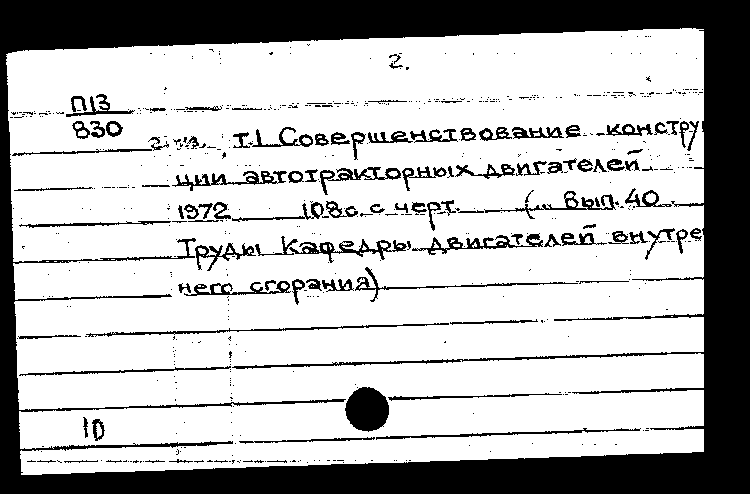 2.
П13
830
т.1 Совершенствование констру
ции автотракторных двигателей
1972 108с. с черт. (... Вып. 40
Труды Кафедры двигателей внутре
него сгорания)
10